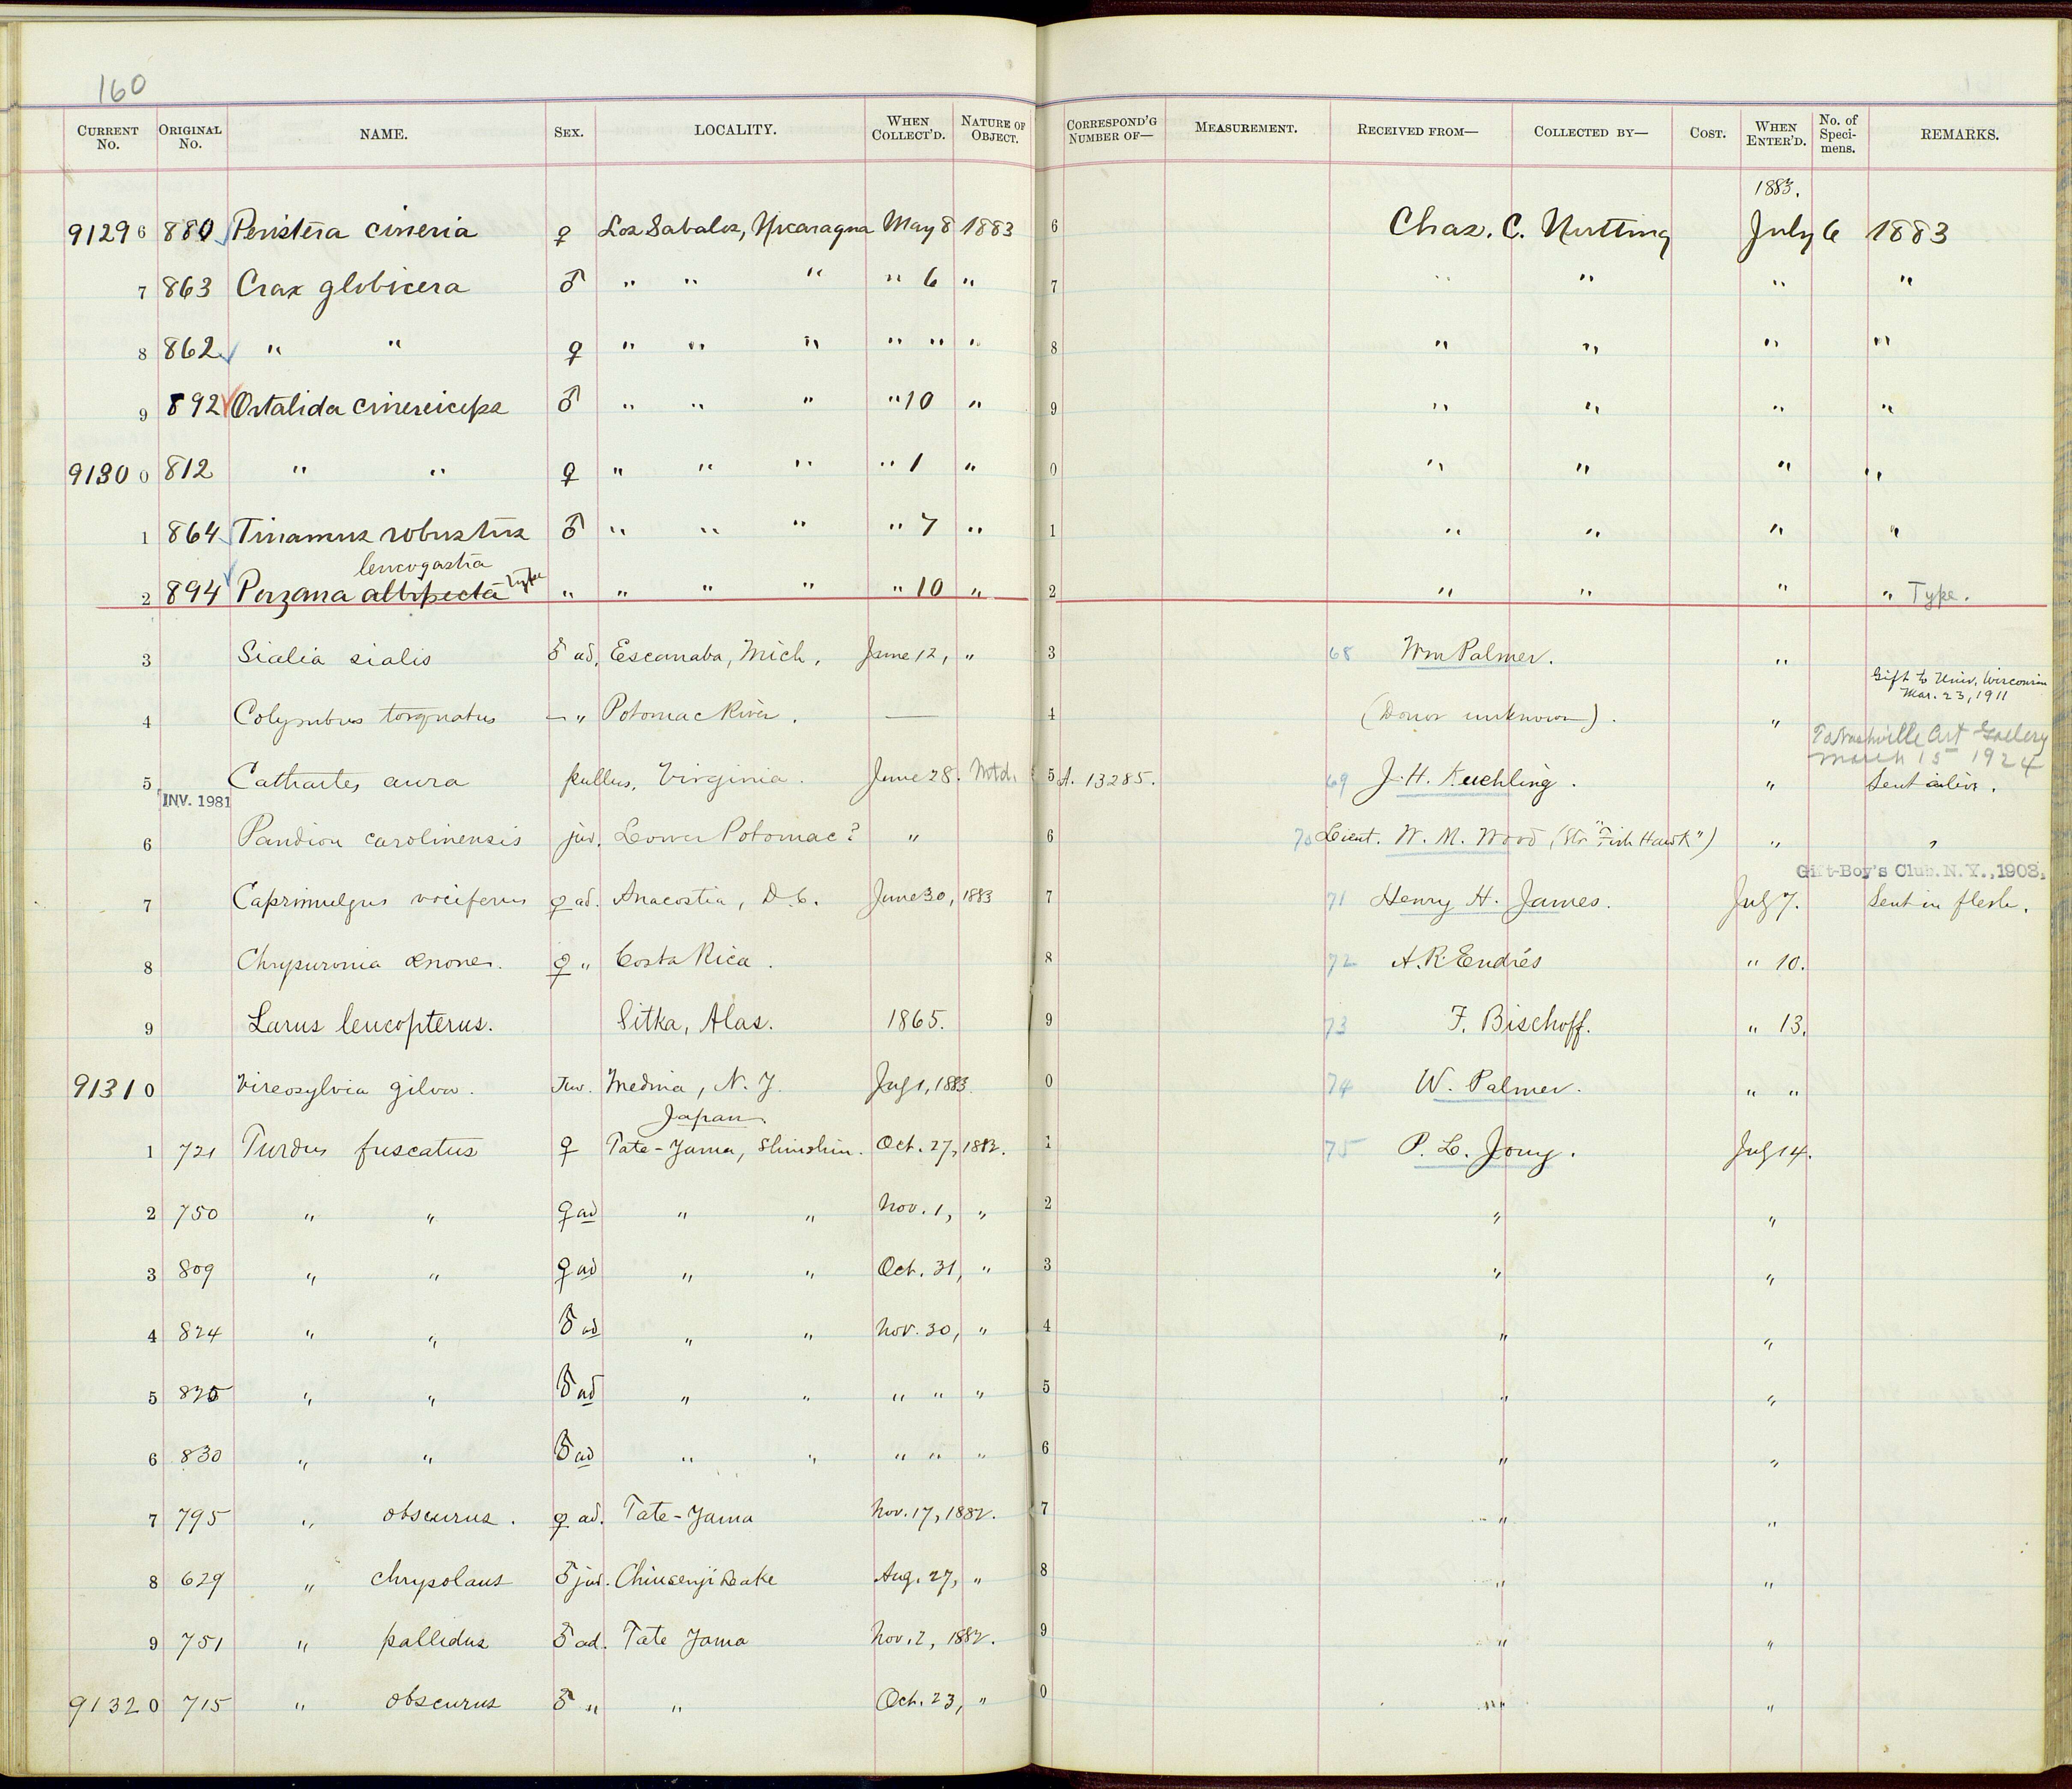 160
CURRENT No. ORIGINAL No. NAME. SEX. LOCALITY. WHEN COLLECT'D. NATURE OF OBJECT. CORRESPOND'G NUMBER OF— MEASUREMENT. RECEIVED FROM— COLLECTED BY— COST. WHEN ENTER'D. No. of Speci-mens. REMARKS.
1883.
91296 880 Peristera cineria ♀ Los Sabalos, Nicaragua May 8 1883 6 Chas. C. Nutting July 6 1883
7 863 Crax globicera ♂ " " " " 6 " 7 " " " "
8 862 " " ♀ " " " " " " 8 " " " "
9 892 Ortalida cinereiceps ♂ " " " " 10 " 9 " " " "
91300 812 " " ♀ " " " " 1 " 0 " " " "
1 864 Tinamus robustus ♂ " " " " 7 " 1 " " " "
leucogastra
2 894 Porzana albipecta type " " " " " 10 " 2 " " " " Type.
3 Sialia sialis ♂ ad. Escanaba, Mich. June 12, " 3 68 Wm Palmer. "
Gift to Univ. Wisconsin
Mar. 23, 1911
4 Colymbus torquatus — " Potomac River. — 4 (Donor unknown). "
To Nashville Art Gallery
March 15 1924
5 Cathartes aura pullus, Virginia. June 28. Mtd. 5 A. 13285. 69 J. H. Kuehling. " Sent alive.
INV. 1981
6 Pandion carolinensis juv. Lower Potomac? " 6 70 Lieut. W. M. Wood (Str "Fish Hawk") " "
Gift-Boy's Club. N.Y., 1903.
7 Caprimulgus vociferus ♀ ad. Anacostia, D.C. June 30, 1883 7 71 Henry H. James. July 7. Sent in flesh.
8 Chrysuronia œnone. ♀ " Costa Rica. 8 72 A. R. Endrés " 10.
9 Larus leucopterus. Sitka, Alas. 1865. 9 73 F. Bischoff. " 13.
91310 Vireosylvia gilva. Juv. Medina, N.Y. July 1, 1883. 0 74 W. Palmer. " "
Japan.
1 721 Turdus fuscatus ♀ Tate-Yama, Shinshiu. Oct. 27, 1882. 1 75 P. L. Jouy. July 14.
2 750 " " ♀ ad " " Nov. 1, " 2 " "
3 809 " " ♀ ad " " Oct. 31, " 3 " "
4 824 " " ♂ ad " " Nov. 30, " 4 " "
5 825 " " ♂ ad " " " " " 5 " "
6 830 " " ♂ ad " " " " " 6 " "
7 795 " obscurus. ♀ ad. Tate-Yama Nov. 17, 1882. 7 " "
8 629 " chrysolaus ♂ juv. Chiusenji Lake Aug. 27, " 8 " "
9 751 " pallidus ♂ ad. Tate Yama Nov. 2, 1882. 9 " "
91320 715 " obscurus ♂ " " Oct. 23, " 0 " "